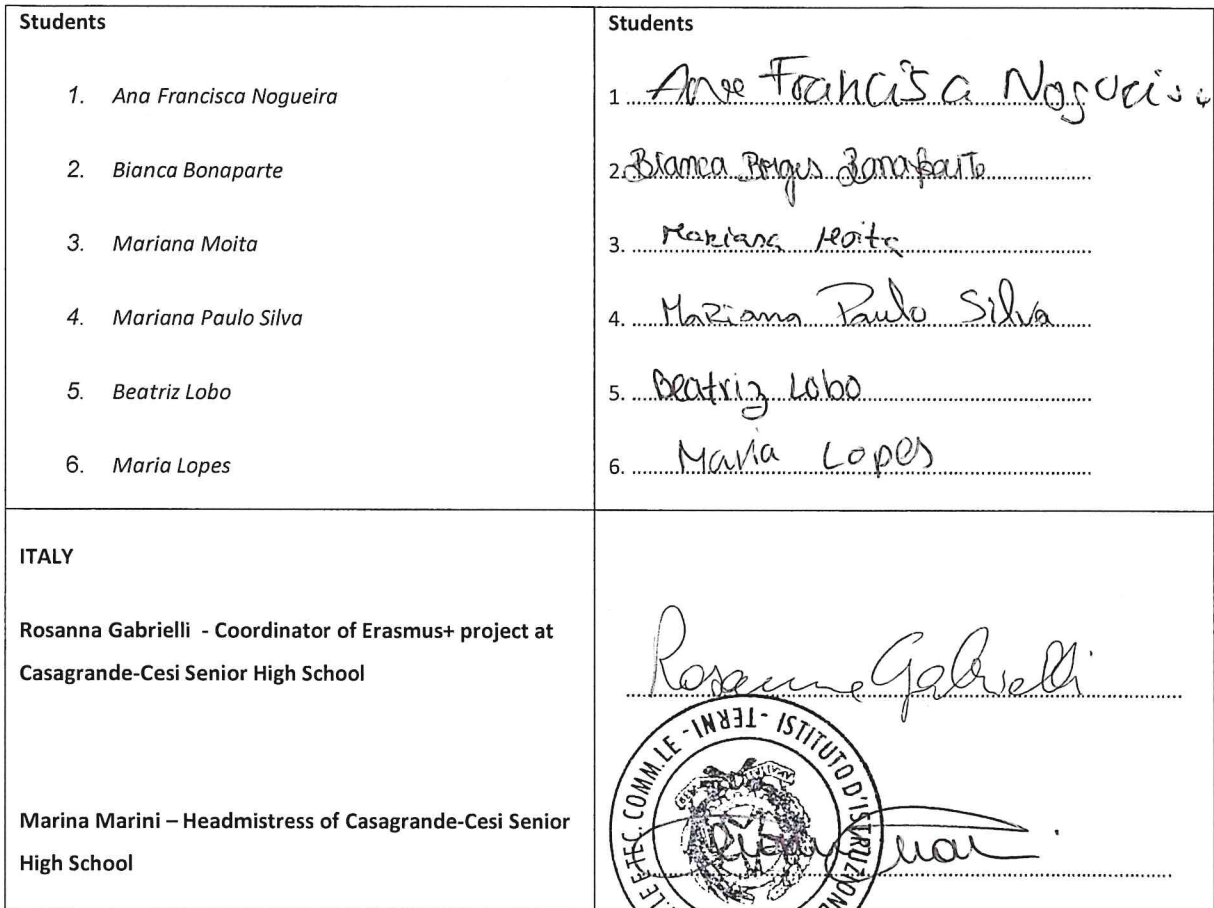 Students
1. Ana Francisca Nogueira
2. Bianca Bonaparte
3. Mariana Moita
4. Mariana Paulo Silva
5. Beatriz Lobo
6. Maria Lopes
Students
1 Ana Francisca Nogueira
2. Bianca Borges Bonaparte
3. Mariana Moita
4. Mariana Paulo Silva
5. Beatriz Lobo
6. Maria Lopes
ITALY
Rosanna Gabrielli - Coordinator of Erasmus+ project at
Casagrande-Cesi Senior High School
Rosanna Gabrielli
Marina Marini – Headmistress of Casagrande-Cesi Senior
High School
.LE E TEC. COMM.LE - TERNI - ISTITUTO D'ISTRUZIONE